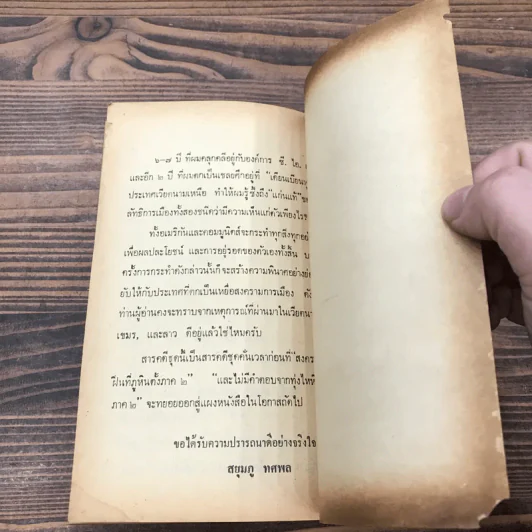 ๖-๗ ปี ที่ผมคลุกคลีอยู่กับองค์การ ซี. ไอ.
และอีก ๒ ปี ที่ผมตกเป็นเชลยศึกอยู่ที่ "เดียนเบียนฟู
ประเทศเวียตนามเหนือ ทำให้ผมรู้ซึ้งถึง "แก่นแท้"
ลัทธิการเมืองทั้งสองชนิดว่ามีความเห็นแก่ตัวเพียงไร
ทั้งอเมริกันและคอมมูนิสต์จะกระทำทุกสิ่งทุกอย่
เพื่อผลประโยชน์ และการอยู่รอดของตัวเองทั้งสิ้น บ
ครั้งการกระทำดังกล่าวนั้นก็จะสร้างความพินาศอย่างย่
ยับให้กับประเทศที่ตกเป็นเหยื่อสงครามการเมือง ดัง
ท่านผู้อ่านคงจะทราบจากเหตุการณ์ที่ผ่านมาในเวียตนา
เขมร, และลาว ดีอยู่แล้วใช่ไหมครับ
สารคดีชุดนี้เป็นสารคดีชุดคั่นเวลาก่อนที่ "สงคร
ฝิ่นที่ภูหินตั้งภาค ๒" "และไม่มีคำตอบจากทุ่งไหหิ
ภาค ๒" จะทยอยออกสู่แผงหนังสือในโอกาสถัดไป
ขอได้รับความปรารถนาดีอย่างจริงใจ
สยุมภู ทศพล